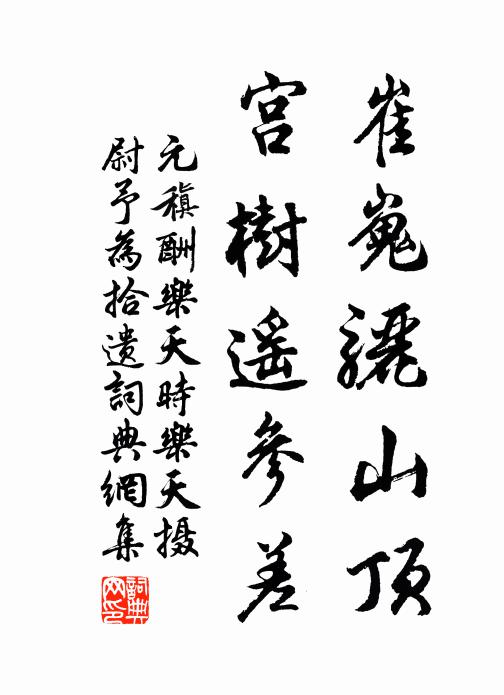 崔嵬驪山頂
宮樹遙參差
元稹酬樂天時樂天摄
尉予為拾遺詞典網集
詞典
网印